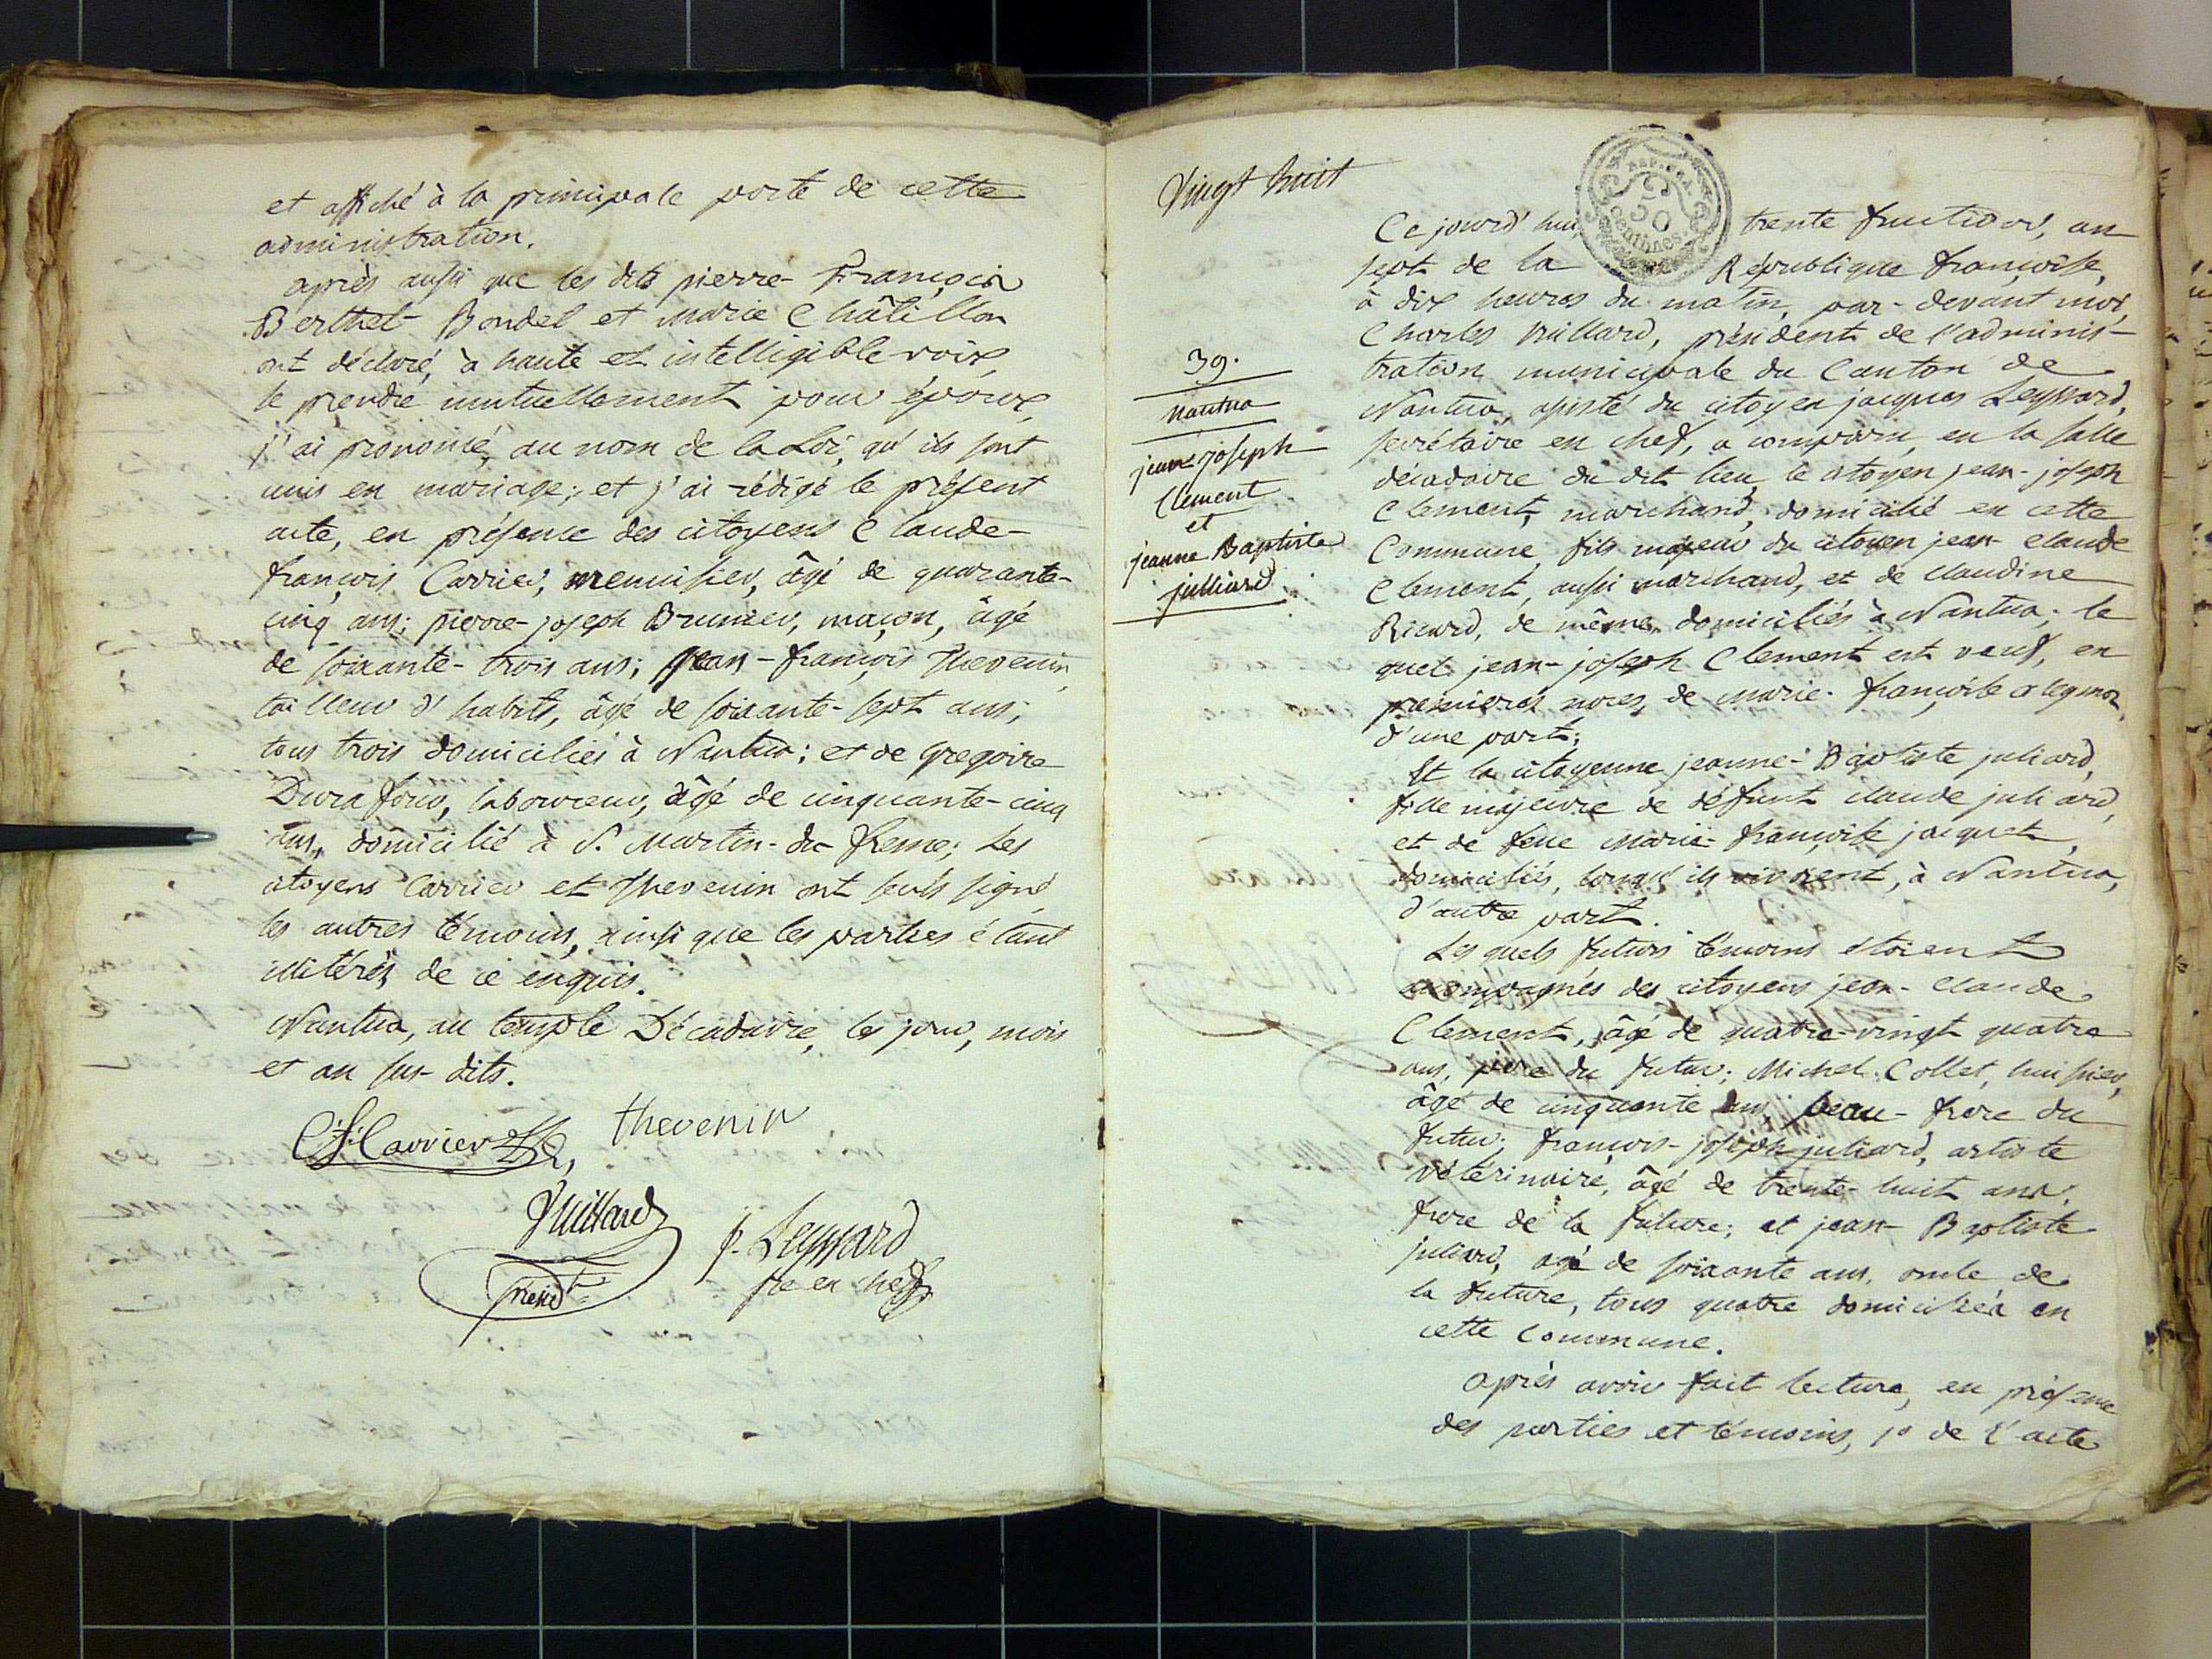 et affiché à la principale porte de cette
administration.
après aussi que les dits pierre-François
Berthet-Bondet et Marie Châtillon
ont déclaré, à haute et intelligible voix,
se prendre mutuellement pour époux,
j'ai prononcé, au nom de la Loi, qu'ils sont
unis en mariage; et j'ai rédigé le présent
acte, en présence des citoyens Claude-
françois Carrier, menuisier, âgé de quarante-
cinq ans; pierre-joseph Brunier, maçon, âgé
de soixante-trois ans; Jean-françois Thevenin,
tailleur d'habits, âgé de soixante-sept ans;
tous trois domiciliés à Nantua; et de gregoire
Durafour, laboureur, âgé de cinquante-cinq
ans, domicilié à S. Martin-du-fresne; Les
citoyens Carrier et Thevenin ont seuls signé,
les autres témoins, ainsi que les parties étant
illitérés de ce enquis.
Nantua, au temple Décadaire, les jour, mois
et an sus-dits.
C. f. Carrier thevenin
Vuillard
J. Leyssard
présid.t
sre en chef
Vingt huit
REP. FRA.
50
centimes
39.
nantua
jean joseph
Clement
et
jeanne Baptiste
julliard
Ce jourd'hui trente fructidor, an
sept de la République françoise,
à dix heures du matin, par-devant moi,
Charles Vuillard, président de l'adminis-
tration municipale du Canton de
Nantua, assisté du citoyen jacques Leyssard,
secrétaire en chef, a comparu, en la salle
décadaire du dit lieu, le citoyen jean-joseph
Clement, marchand, domicilié en cette
Commune, fils majeur du citoyen jean-claude
Clement, aussi marchand, et de claudine
Ricard, de même domiciliés à Nantua; le
quel jean-joseph Clement est veuf, en
premieres noces, de marie-françoise
d'une part;
Et la citoyenne jeanne-Baptiste juliard,
fille majeure de défunt claude juliard,
et de feue Marie-françoise jacquet,
domiciliés, lorsqu'ils vivoient, à Nantua,
d'autre part.
Les quels futurs témoins étoient
accompagnés des citoyens jean-claude
Clement, âgé de quatre-vingt quatre
ans, père du futur; Michel Collet, huissier,
âgé de cinquante ans, beau-frere du
futur; françois-joseph juliard, artiste
vétérinaire, âgé de trente-huit ans,
frere de la future; et jean-Baptiste
juliard, agé de soixante ans, oncle de
la future, tous quatre domiciliés en
cette Commune.
après avoir fait lecture, en présence
des parties et témoins, 1º de l'acte